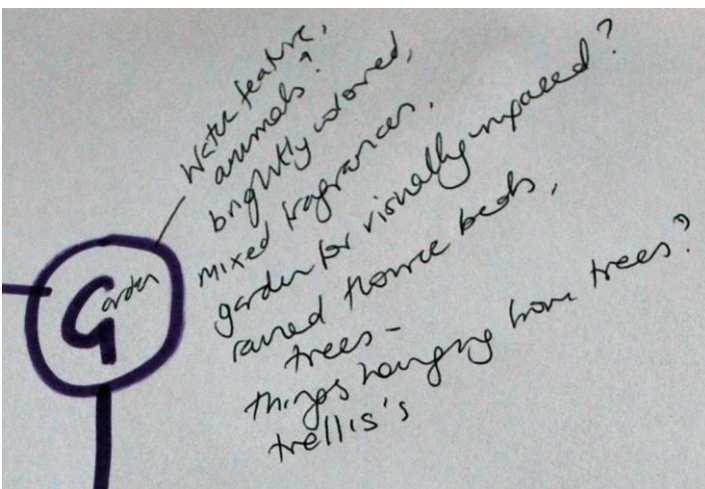 Garden
Water feature,
animals?
brightly colored,
mixed fragrances,
garden for visually impaired?
raised flower beds,
trees -
things hanging from trees?
trellis's